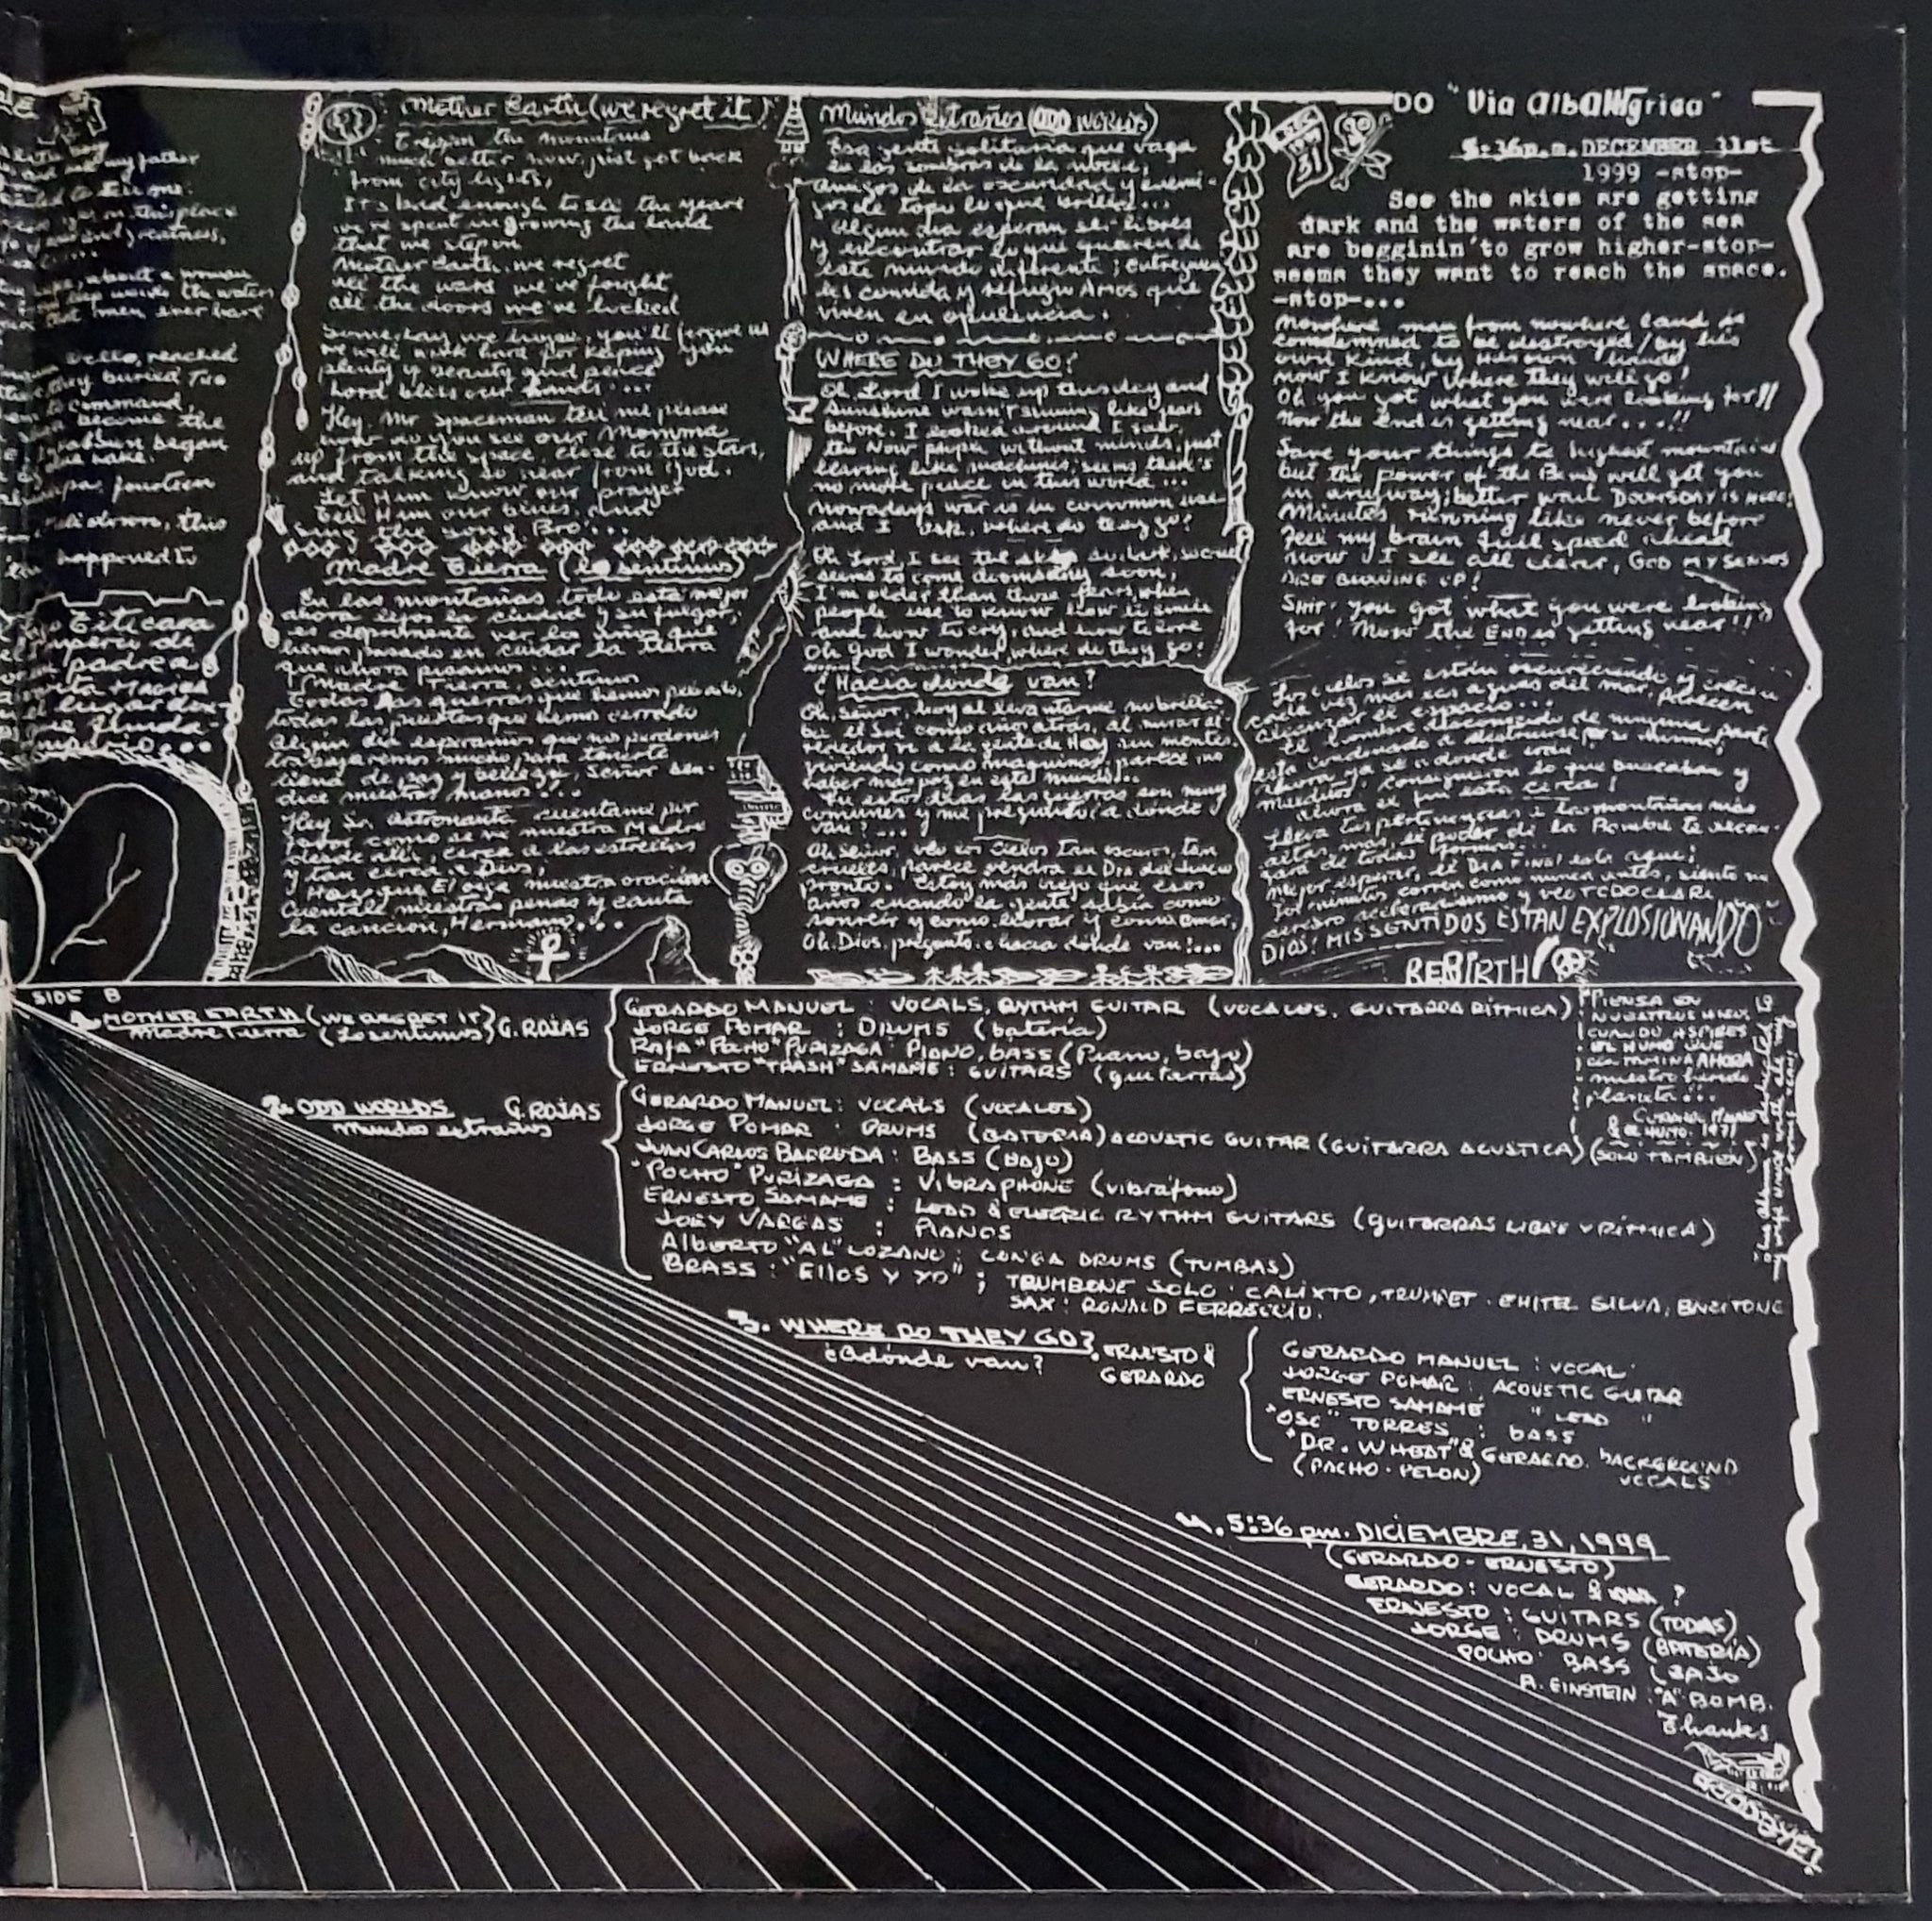 my father
this place
and greatness,
about a woman
the waters
men ever have
reached
they buried two
to command,
became the
began
fourteen
down, this
happened to
Titicaca
imperio de
padre a
Mother Earth (we regret it)
Trippin the mountains
much better now, just got back
from city lights,
It's hard enough to see the years
we've spent in growing the land
that we step on
Mother Earth, we regret
all the wars we've fought
all the doors we've locked
Someday, we hope, you'll forgive us
we will work hard for keeping you
plenty y beauty and peace
Lord bless our hands....
Hey, Mr spaceman tell me please
how do you see our Momma
up from the space, close to the stars,
and talking so near from God.
Let Him know our prayer
tell Him our blues, and
sing the song Bro'...
Madre Tierra (lo sentimos)
En las montañas todo está mejor
ahora lejos la ciudad y su fulgor,
es deprimente ver los años que
hemos pasado en cuidar la Tierra
que ahora pisamos...
Madre Tierra, sentimos
todas las guerras que hemos peleado,
todas las puertas que hemos cerrado
Algún día esperamos que nos perdones
trabajaremos mucho para tenerte
llena de paz y belleza, Señor ben-
dice nuestras manos!...
Hey Sr. astronauta cuéntame por
favor como se ve nuestra Madre
desde allí, cerca a las estrellas
y tan cerca a Dios,
Haz que El oiga nuestra oración
cuéntale nuestras penas y canta
la canción, Hermano...
Mundos Extraños (ODD WORLDS)
Esa gente solitaria que vaga
en las sombras de la noche,
amigos de la oscuridad y enemi-
gos de todo lo que brilla...
Algún día esperan ser libres
y encontrar lo que quieren de
este mundo diferente; entreguen
les comida y refugio Amos que
viven en opulencia.
WHERE DO THEY GO?
Oh Lord I woke up this day and
Sunshine wasn't shining like years
before. I looked around I saw,
the Now people without minds, just
leaving like machines, seems there's
no more peace in this world...
nowadays war is in common use
and I ask, where do they go?
Oh Lord, I see the skies so dark, so cruel
seems to come doomsday soon,
I'm older than those years, when
people use to know how to smile
and how to cry, and how to love
Oh God I wonder, where do they go?
¿Hacia dónde van?
Oh, Señor, hoy al levantarme no brilla-
ba el Sol como años atrás, al mirar al-
rededor vi a la gente de Hoy sin mentes
viviendo como máquinas, parece no
haber más paz en este mundo...
En estos días las guerras son muy
comunes y me pregunto ¿a dónde
van?...
Oh Señor, veo los cielos tan oscuros, tan
crueles, parece vendrá el Día del Juicio
pronto. Estoy más viejo que esos
años cuando la gente sabía como
sonreír y como llorar y como amar.
Oh Dios, pregunto ¿hacia dónde van?...
DEC 1999 31
DO "Via AlbaNNgrica"
5:36p.m. DECEMBER 31st
1999 -stop-
See the skies are getting
dark and the waters of the sea
are begginin'to grow higher-stop-
seems they want to reach the space.
-stop-...
Nowhere man from nowhere land is
condemned to be destroyed/by his
own kind, by His own hands
now I know where they will go!
Oh you got what you were looking for!!
Now the End is getting near...!!
Save your things to highest mountains
but the power of the Bomb will get you
in anyway; better wait DOOMSDAY IS HERE!
Minutes running like never before
feel my brain full speed ahead
now I see all clear, GOD MY SENSES
ARE BLOWING UP!
SHIT, you got what you were looking
for! Now the END is getting near!!
Los cielos se están oscureciendo y crecen
cada vez más las aguas del mar, parecen
alcanzar el espacio...
El hombre desconocido de ninguna parte
está condenado a destruirse por si mismo,
ahora ya se a donde irán!
Malditos! consiguieron lo que buscaban y
ahora el fin está cerca!
Lleva tus pertenencias a las montañas más
altas, mas, el poder de la Bomba te alcan-
zará de todas formas...
mejor esperar, el DIA FINAL está aquí;
los minutos corren como nunca antes, siento mi
cerebro acelerarse y veo TODO CLARO
DIOS! MIS SENTIDOS ESTAN EXPLOSIONANDO
REBIRTH!
SIDE B
1. MOTHER EARTH (WE REGRET IT) G. ROJAS
Madre Tierra (Lo sentimos)
GERARDO MANUEL: VOCALS, RYTHM GUITAR (VOCALES, GUITARRA RITMICA)
JORGE POMAR: DRUMS (batería)
RAFA "POCHO" PURIZAGA: PIANO, BASS (Piano, bajo)
ERNESTO "TRASH" SAMAME: GUITARS (guitarras)
PIENSA EN
NUESTROS HIJOS,
CUANDO ASPIRES
EL HUMO QUE
CONTAMINA AHORA
nuestro lindo
planeta...
GERARDO MANUEL
& EL HUMO. 1971
2. ODD WORLDS G. ROJAS
Mundos extraños
GERARDO MANUEL: VOCALS (VOCALES)
JORGE POMAR: DRUMS (BATERIA) ACOUSTIC GUITAR (GUITARRA ACUSTICA) (SOLO TAMBIEN)
JUAN CARLOS BARREDA: BASS (BAJO)
"POCHO" PURIZAGA: VIBRAPHONE (vibráfono)
ERNESTO SAMAME: LEAD & ELECTRIC RYTHM GUITARS (GUITARRAS LIBRE Y RITMICA)
JOEY VARGAS: PIANOS
AlbERTO "AL" LOZANO: CONGA DRUMS (TUMBAS)
BRASS: "EllOS Y YO"; TROMBONE SOLO: CALIXTO, TRUMPET: CHITEL SILVA, BARITONE
SAX: RONALD FERRECCIO.
3. WHERE DO THEY GO? ERNESTO &
¿adónde van? GERARDO
GERARDO MANUEL: VOCAL
JORGE POMAR: ACOUSTIC GUITAR
ERNESTO SAMAME " LEAD "
"OSC" TORRES: bASS
"DR. WHEAT" & GERARDO. BACKGROUND
(PACHO·PELON) VOCALS
4. 5:36 pm. DICIEMBRE, 31, 1999
(GERARDO - ERNESTO)
GERARDO: VOCAL & ?
ERNESTO: GUITARS (TODAS)
JORGE: DRUMS (BATERÍA)
POCHO: BASS (BAJO
A. EINSTEIN: "A" BOMB.
Thanks
GOODBYE!